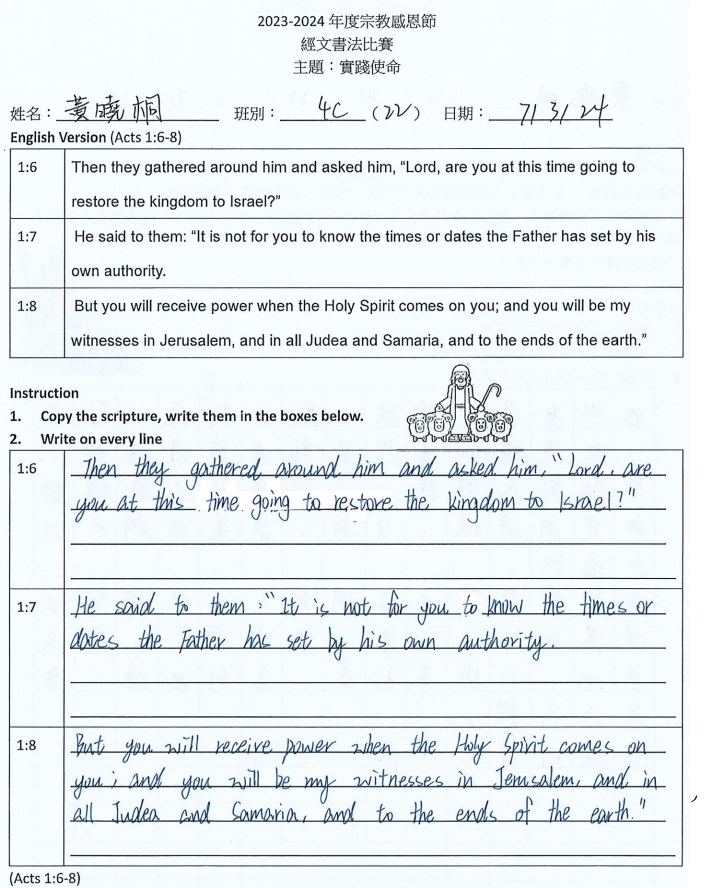 2023-2024 年度宗教感恩節
經文書法比賽
主題：實踐使命
姓名： 黃曉桐 班別： 4C (22) 日期： 7/3/24
English Version (Acts 1:6-8)
1:6 Then they gathered around him and asked him, “Lord, are you at this time going to
restore the kingdom to Israel?”
1:7 He said to them: “It is not for you to know the times or dates the Father has set by his
own authority.
1:8 But you will receive power when the Holy Spirit comes on you; and you will be my
witnesses in Jerusalem, and in all Judea and Samaria, and to the ends of the earth.”
Instruction
1. Copy the scripture, write them in the boxes below.
2. Write on every line
1:6 Then they gathered around him and asked him, "Lord, are
you at this time going to restore the kingdom to Israel?"
1:7 He said to them: "It is not for you to know the times or
dates the Father has set by his own authority.
1:8 But you will receive power when the Holy Spirit comes on
you; and you will be my witnesses in Jerusalem, and in
all Judea and Samaria, and to the ends of the earth."
(Acts 1:6-8)